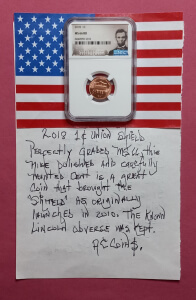 2018 1¢ UNION SHIELD
PERFECTLY GRADED MS66, this
NICE POLISHED AND CAREFULLY
MINTED CENT IS A GREAT
COIN THAT BROUGHT THE
"SHIELD" AS ORIGINALLY
LAUNCHED IN 2010. THE KNOWN
LINCOLN OBVERSE WAS KEPT.